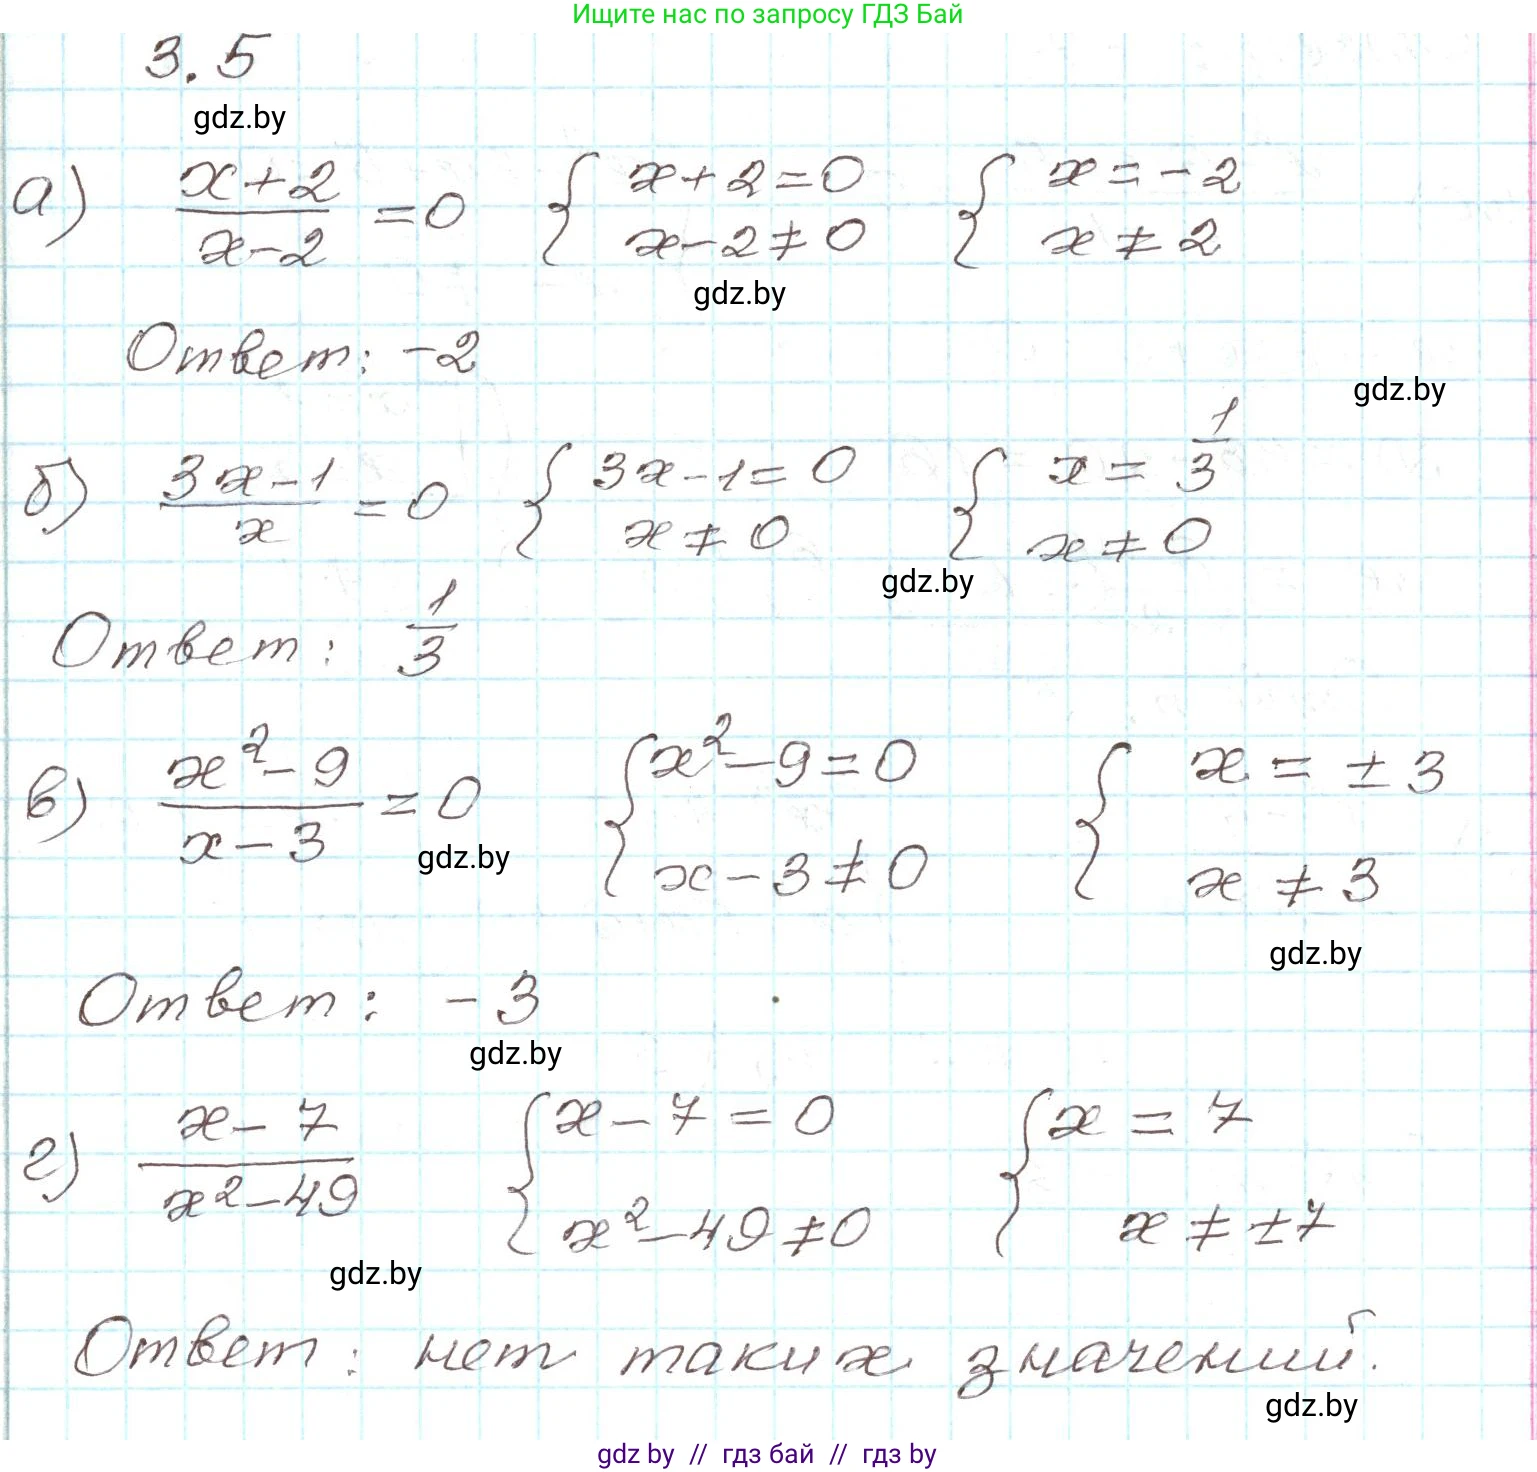 Ищите нас по запросу ГДЗ Бай
3.5
gdz.by
а) (x+2)/(x-2) =0 { x+2=0 { x=-2
x-2≠0 x≠2
gdz.by
Ответ: -2
gdz.by
б) (3x-1)/x =0 { 3x-1=0 { x=1/3
x≠0 x≠0
gdz.by
Ответ: 1/3
в) (x²-9)/(x-3) =0 { x²-9=0 { x=±3
x-3≠0 x≠3
gdz.by
gdz.by
Ответ: -3
gdz.by
г) (x-7)/(x²-49) { x-7=0 { x=7
x²-49≠0 x≠±7
gdz.by
Ответ: нет таких значений.
gdz.by
gdz by // гдз бай // гдз by